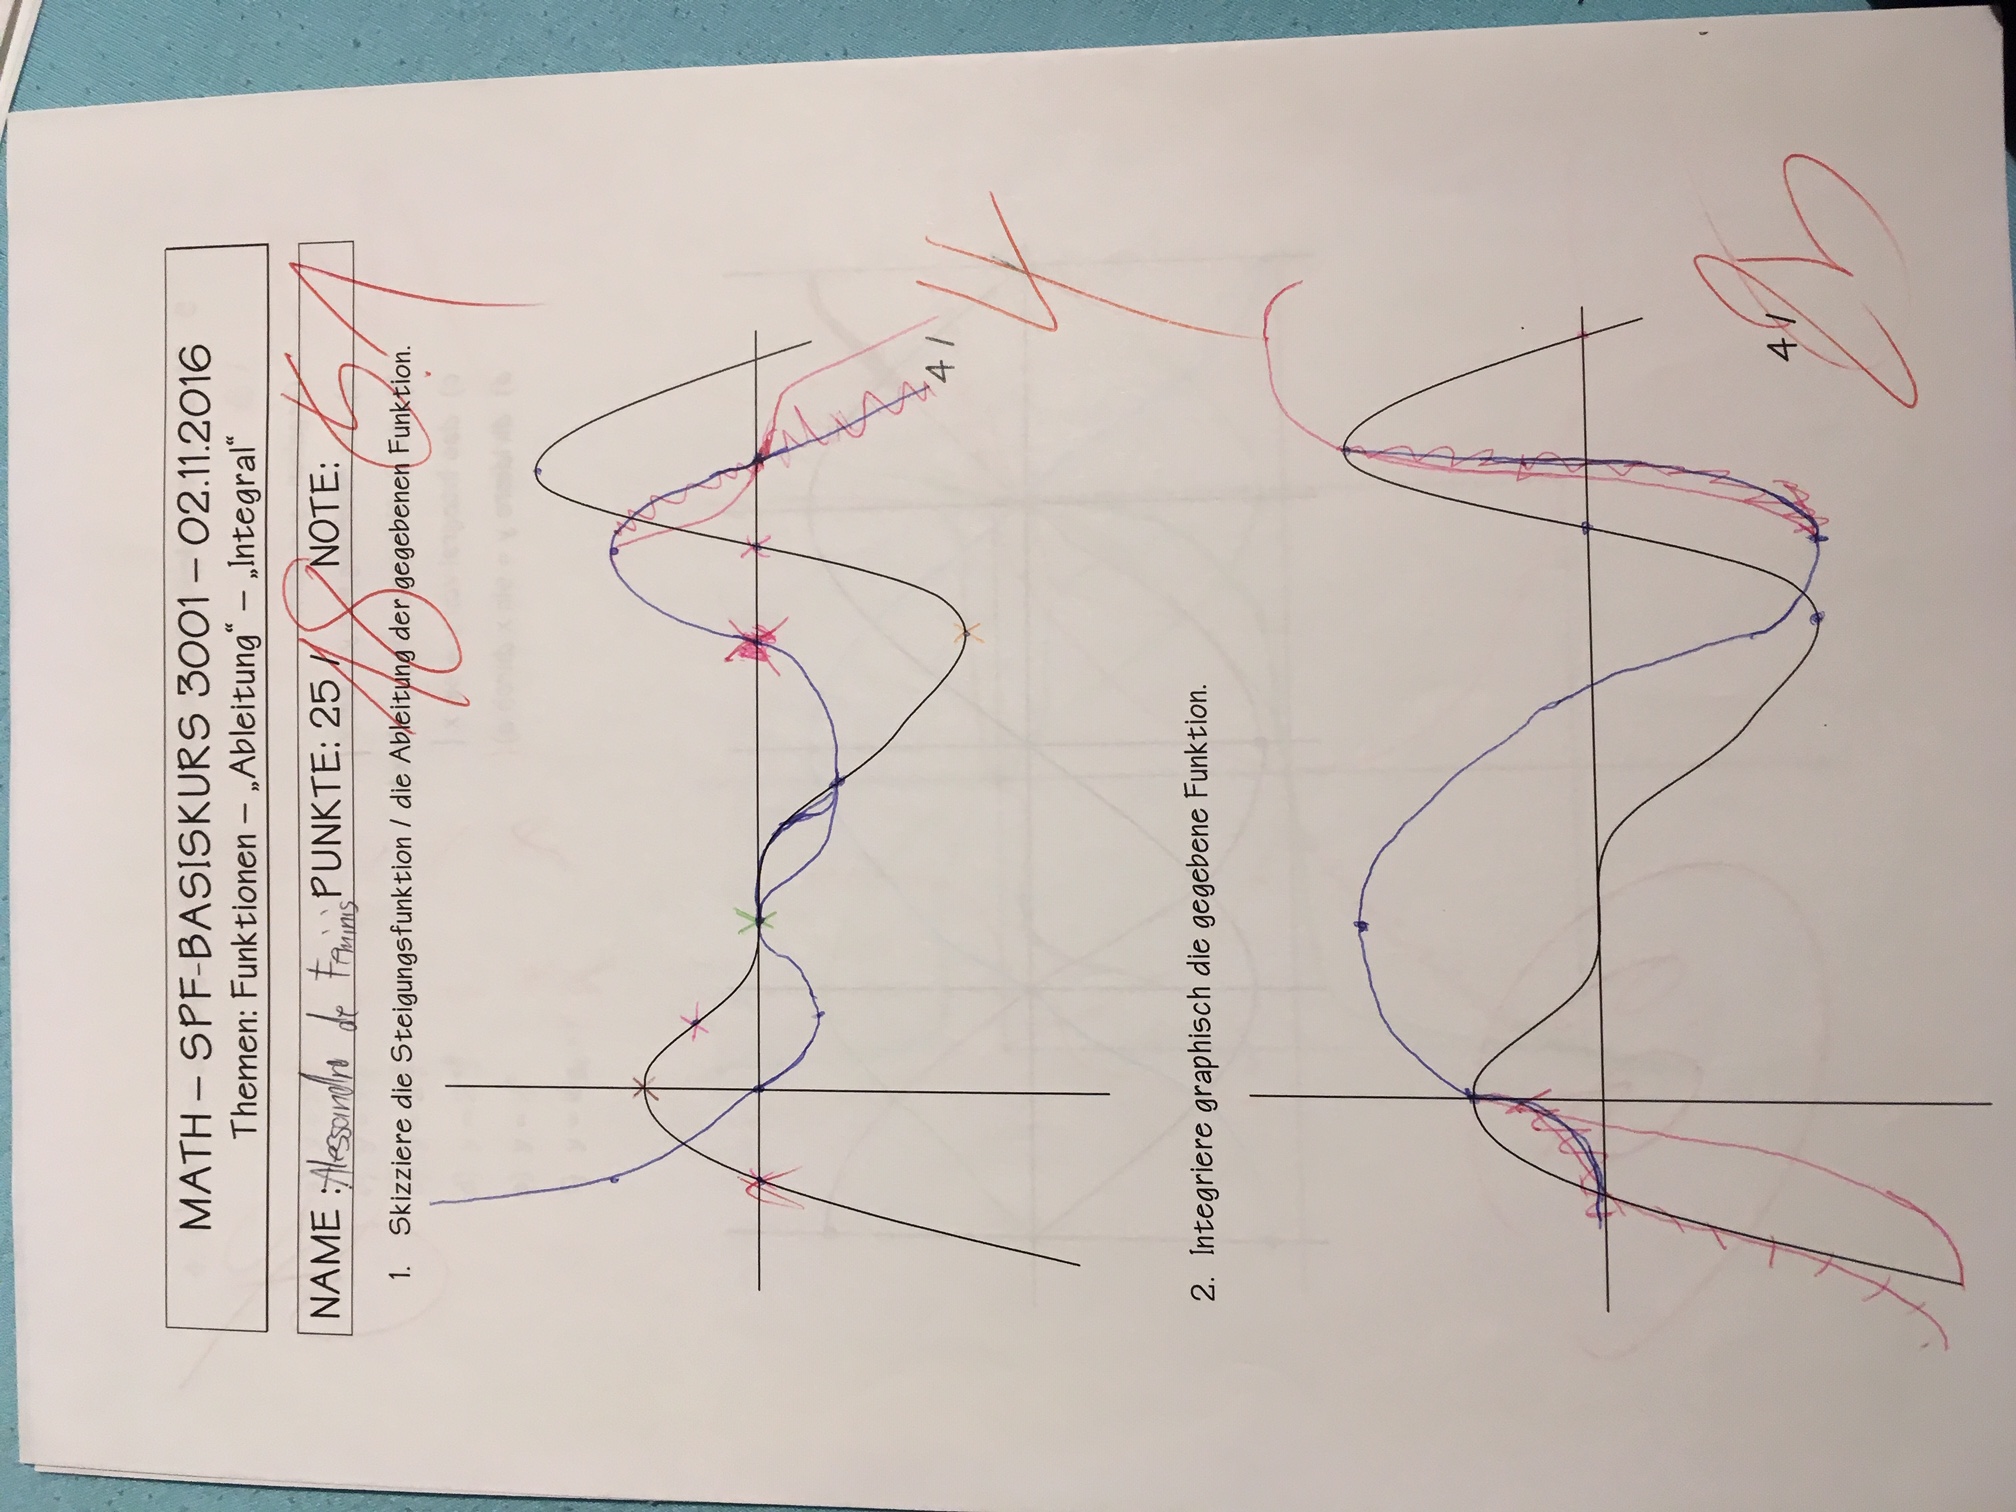 MATH – SPF-BASISKURS 3001 – 02.11.2016
Themen: Funktionen – „Ableitung“ – „Integral“
NAME : Alessandro de Feminis PUNKTE: 25 / 18 NOTE: 5.1
1. Skizziere die Steigungsfunktion / die Ableitung der gegebenen Funktion.
4 / 4
2. Integriere graphisch die gegebene Funktion.
4 /